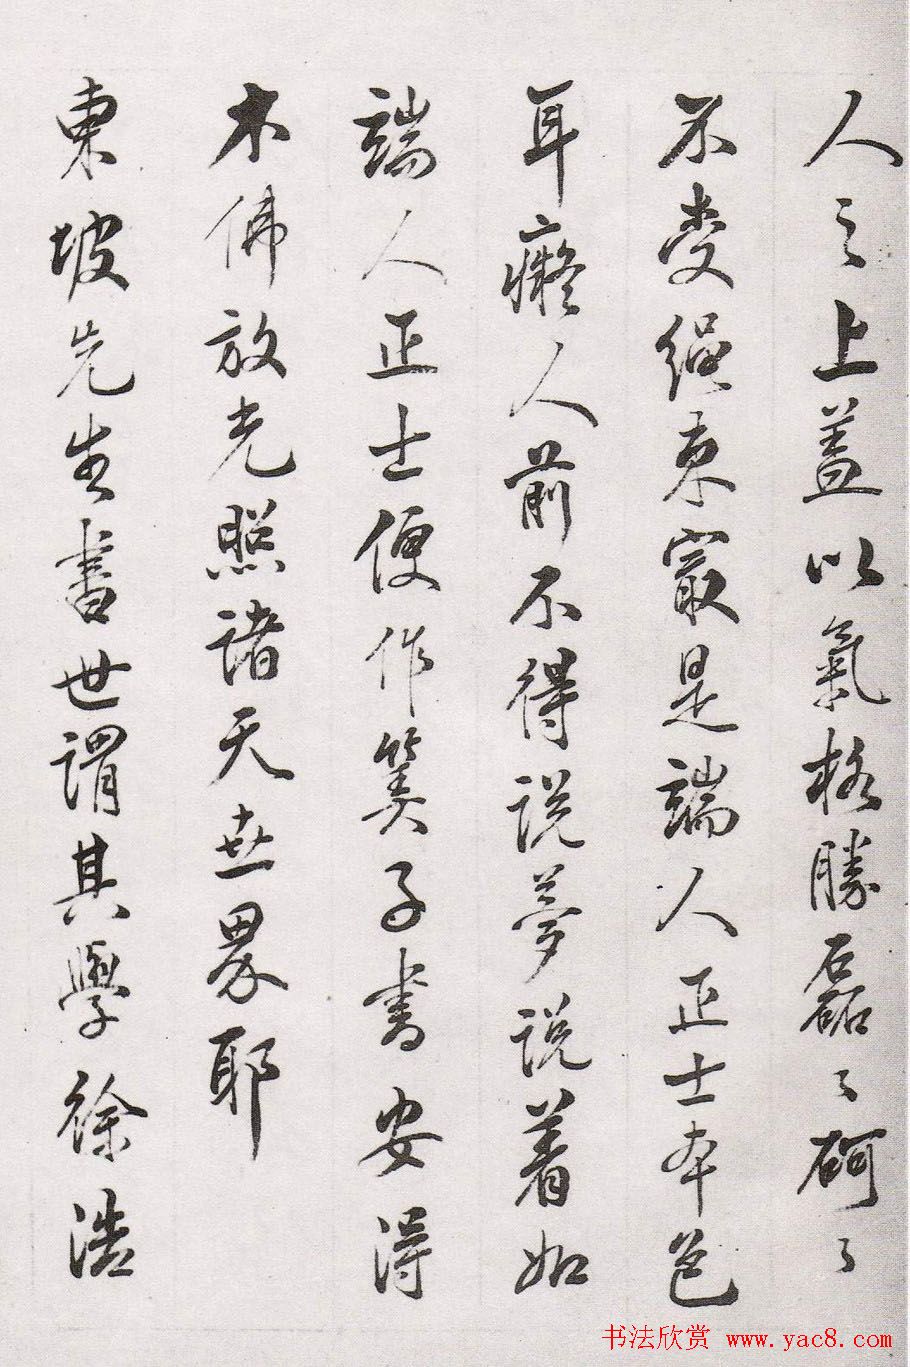 人之上盖以氣格勝磊々砢々
不受繩束㝡是端人正士本色
耳癡人前不得説夢説着如
端人正士便作筭子書安得
木佛放光照諸天世界耶
東坡先生書世謂其學徐浩
书法欣赏 www.yac8.com